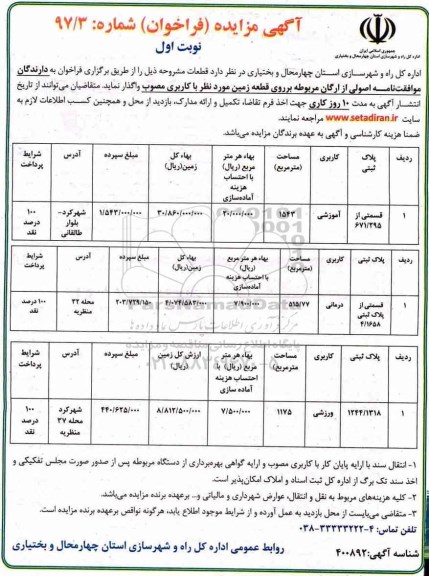 جمهوری اسلامی ایران
اداره کل راه و شهرسازی استان چهارمحال و بختیاری
آگهی مزایده (فراخوان) شماره: ۹۷/۳
نوبت اول
اداره کل راه و شهرسازی استان چهارمحال و بختیاری در نظر دارد قطعات مشروحه ذیل را از طریق برگزاری فراخوان به دارندگان
موافقت‌نامه اصولی از ارگان مربوطه برروی قطعه زمین مورد نظر با کاربری مصوب واگذار نماید. متقاضیان می‌توانند از تاریخ
انتشار آگهی به مدت ۱۰ روز کاری جهت اخذ فرم تقاضا، تکمیل و ارائه مدارک، بازدید از محل و همچنین کسب اطلاعات لازم به
سایت www.setadiran.ir مراجعه نمایند.
ضمنا هزینه کارشناسی و آگهی به عهده برندگان مزایده می‌باشد.
ردیف | پلاک ثبتی | کاربری | مساحت (مترمربع) | بهاء هر متر مربع (ریال) با احتساب هزینه آماده‌سازی | بهاء کل زمین(ریال) | مبلغ سپرده | آدرس | شرایط پرداخت
۱ | قسمتی از ۶۷۱/۲۹۵ | آموزشی | ۱۵۴۳ | ۲۰/۰۰۰/۰۰۰ | ۳۰/۸۶۰/۰۰۰/۰۰۰ | ۱/۵۴۳/۰۰۰/۰۰۰ | شهرکرد- بلوار طالقانی | ۱۰۰ درصد نقد
ردیف | پلاک ثبتی | کاربری | مساحت (مترمربع) | بهاء هر متر مربع (ریال) با احتساب هزینه آماده‌سازی | بهاء کل زمین(ریال) | مبلغ سپرده | آدرس | شرایط پرداخت
۱ | قسمتی از ۴/۱۶۵۸ | درمانی | ۵۱۵/۷۷ | ۷/۹۰۰/۰۰۰ | ۴/۰۷۴/۵۸۳/۰۰۰ | ۲۰۳/۷۲۹/۱۵۰ | محله ۳۲ منظریه | ۱۰۰ درصد نقد
ردیف | پلاک ثبتی | کاربری | مساحت (مترمربع) | بهاء هر متر مربع (ریال) با احتساب هزینه آماده سازی | ارزش کل زمین (ریال) | مبلغ سپرده | آدرس | شرایط پرداخت
۱ | ۱۲۴۴/۱۳۱۸ | ورزشی | ۱۱۷۵ | ۷/۵۰۰/۰۰۰ | ۸/۸۱۲/۵۰۰/۰۰۰ | ۴۴۰/۶۲۵/۰۰۰ | شهرکرد محله ۳۷ منظریه | ۱۰۰ درصد نقد
۱- انتقال سند با ارایه پایان کار با کاربری مصوب و ارایه گواهی بهره‌برداری از دستگاه مربوطه پس از صدور صورت مجلس تفکیکی و
اخذ سند تک برگ از اداره کل ثبت اسناد و املاک امکان‌پذیر است.
۲- کلیه هزینه‌های مربوط به نقل و انتقال، عوارض شهرداری و مالیاتی و.. برعهده برنده مزایده می‌باشد.
۳- متقاضی می‌بایست از محل بازدید به عمل آورده و از شرایط موجود اطلاع یابد، هرگونه نواقص برعهده برنده مزایده است.
تلفن تماس: ۴-۳۳۳۳۳۲۲۲-۰۳۸
شناسه آگهی: ۴۰۰۸۹۲
روابط عمومی اداره کل راه و شهرسازی استان چهارمحال و بختیاری